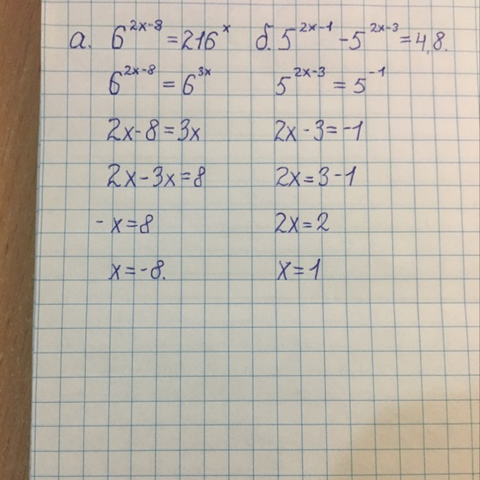 а. 6^{2x-8} = 216^x
6^{2x-8} = 6^{3x}
2x-8=3x
2x-3x=8
-x=8
x=-8.
б. 5^{2x-1} - 5^{2x-3} = 4,8.
5^{2x-3} = 5^{-1}
2x-3=-1
2x=3-1
2x=2
x=1